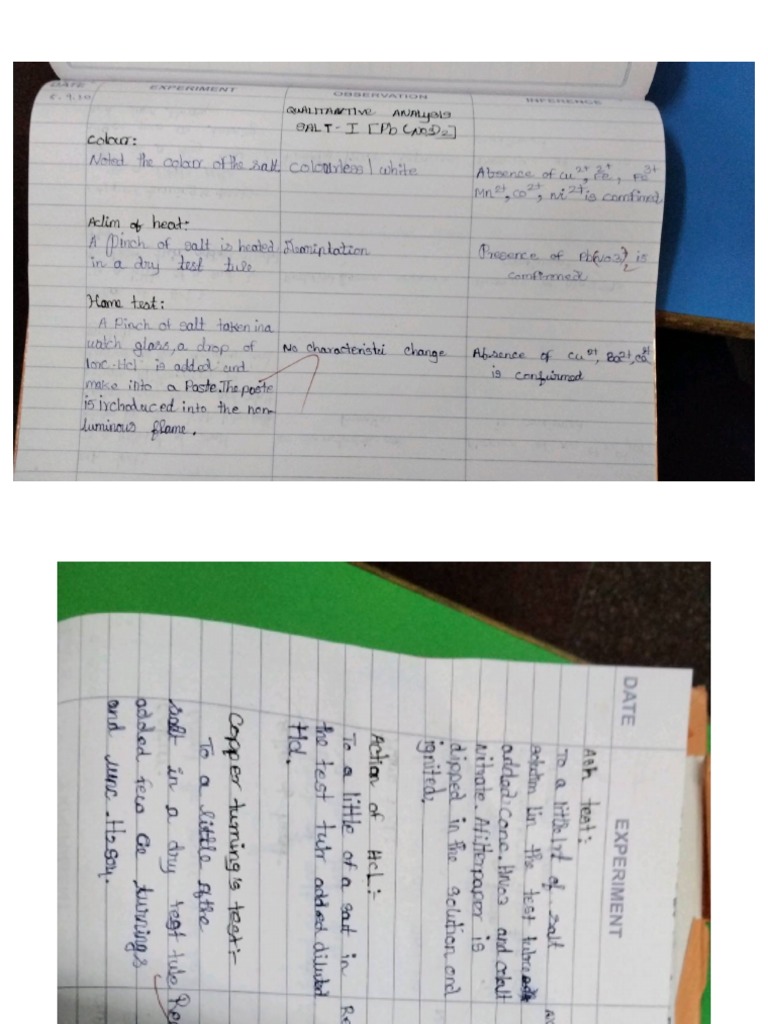 DATE EXPERIMENT OBSERVATION INFERENCE
5.9.10
QUALITATIVE ANALYSIS
SALT - I [Pb (NO3)2]
Colour:
Noted the colour of the salt colourless / white Absence of Cu2+, Fe2+, Fe3+
Mn2+, Co2+, Ni2+ is confirmed
Action of heat:
A Pinch of salt is heated Presence of Pb(NO3)2 is
in a dry test tube confirmed
Flame test:
A Pinch of salt taken in a
watch glass, a drop of No characteristic change Absence of Cu2+, Ba2+, Ca2+
conc. Hcl is added and is confirmed
make into a Paste. The paste
is introduced into the non-
luminous flame.
DATE EXPERIMENT
Ash test:-
To a little of salt
solution in the test tube
added conc. HNO3 and cobalt
Nitrate. A filter paper is
dipped in the solution and
ignited,
Action of HCL:-
To a little of a salt in
the test tube added diluted
Hcl.
Copper turning's test:-
To a little of the
salt in a dry test tube
added few Cu turnings
and conc. H2SO4.